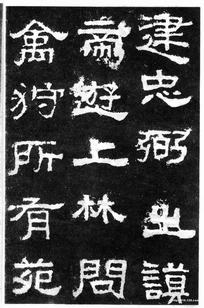 建忠弼之謨
帝遊上林問
禽狩所有苑